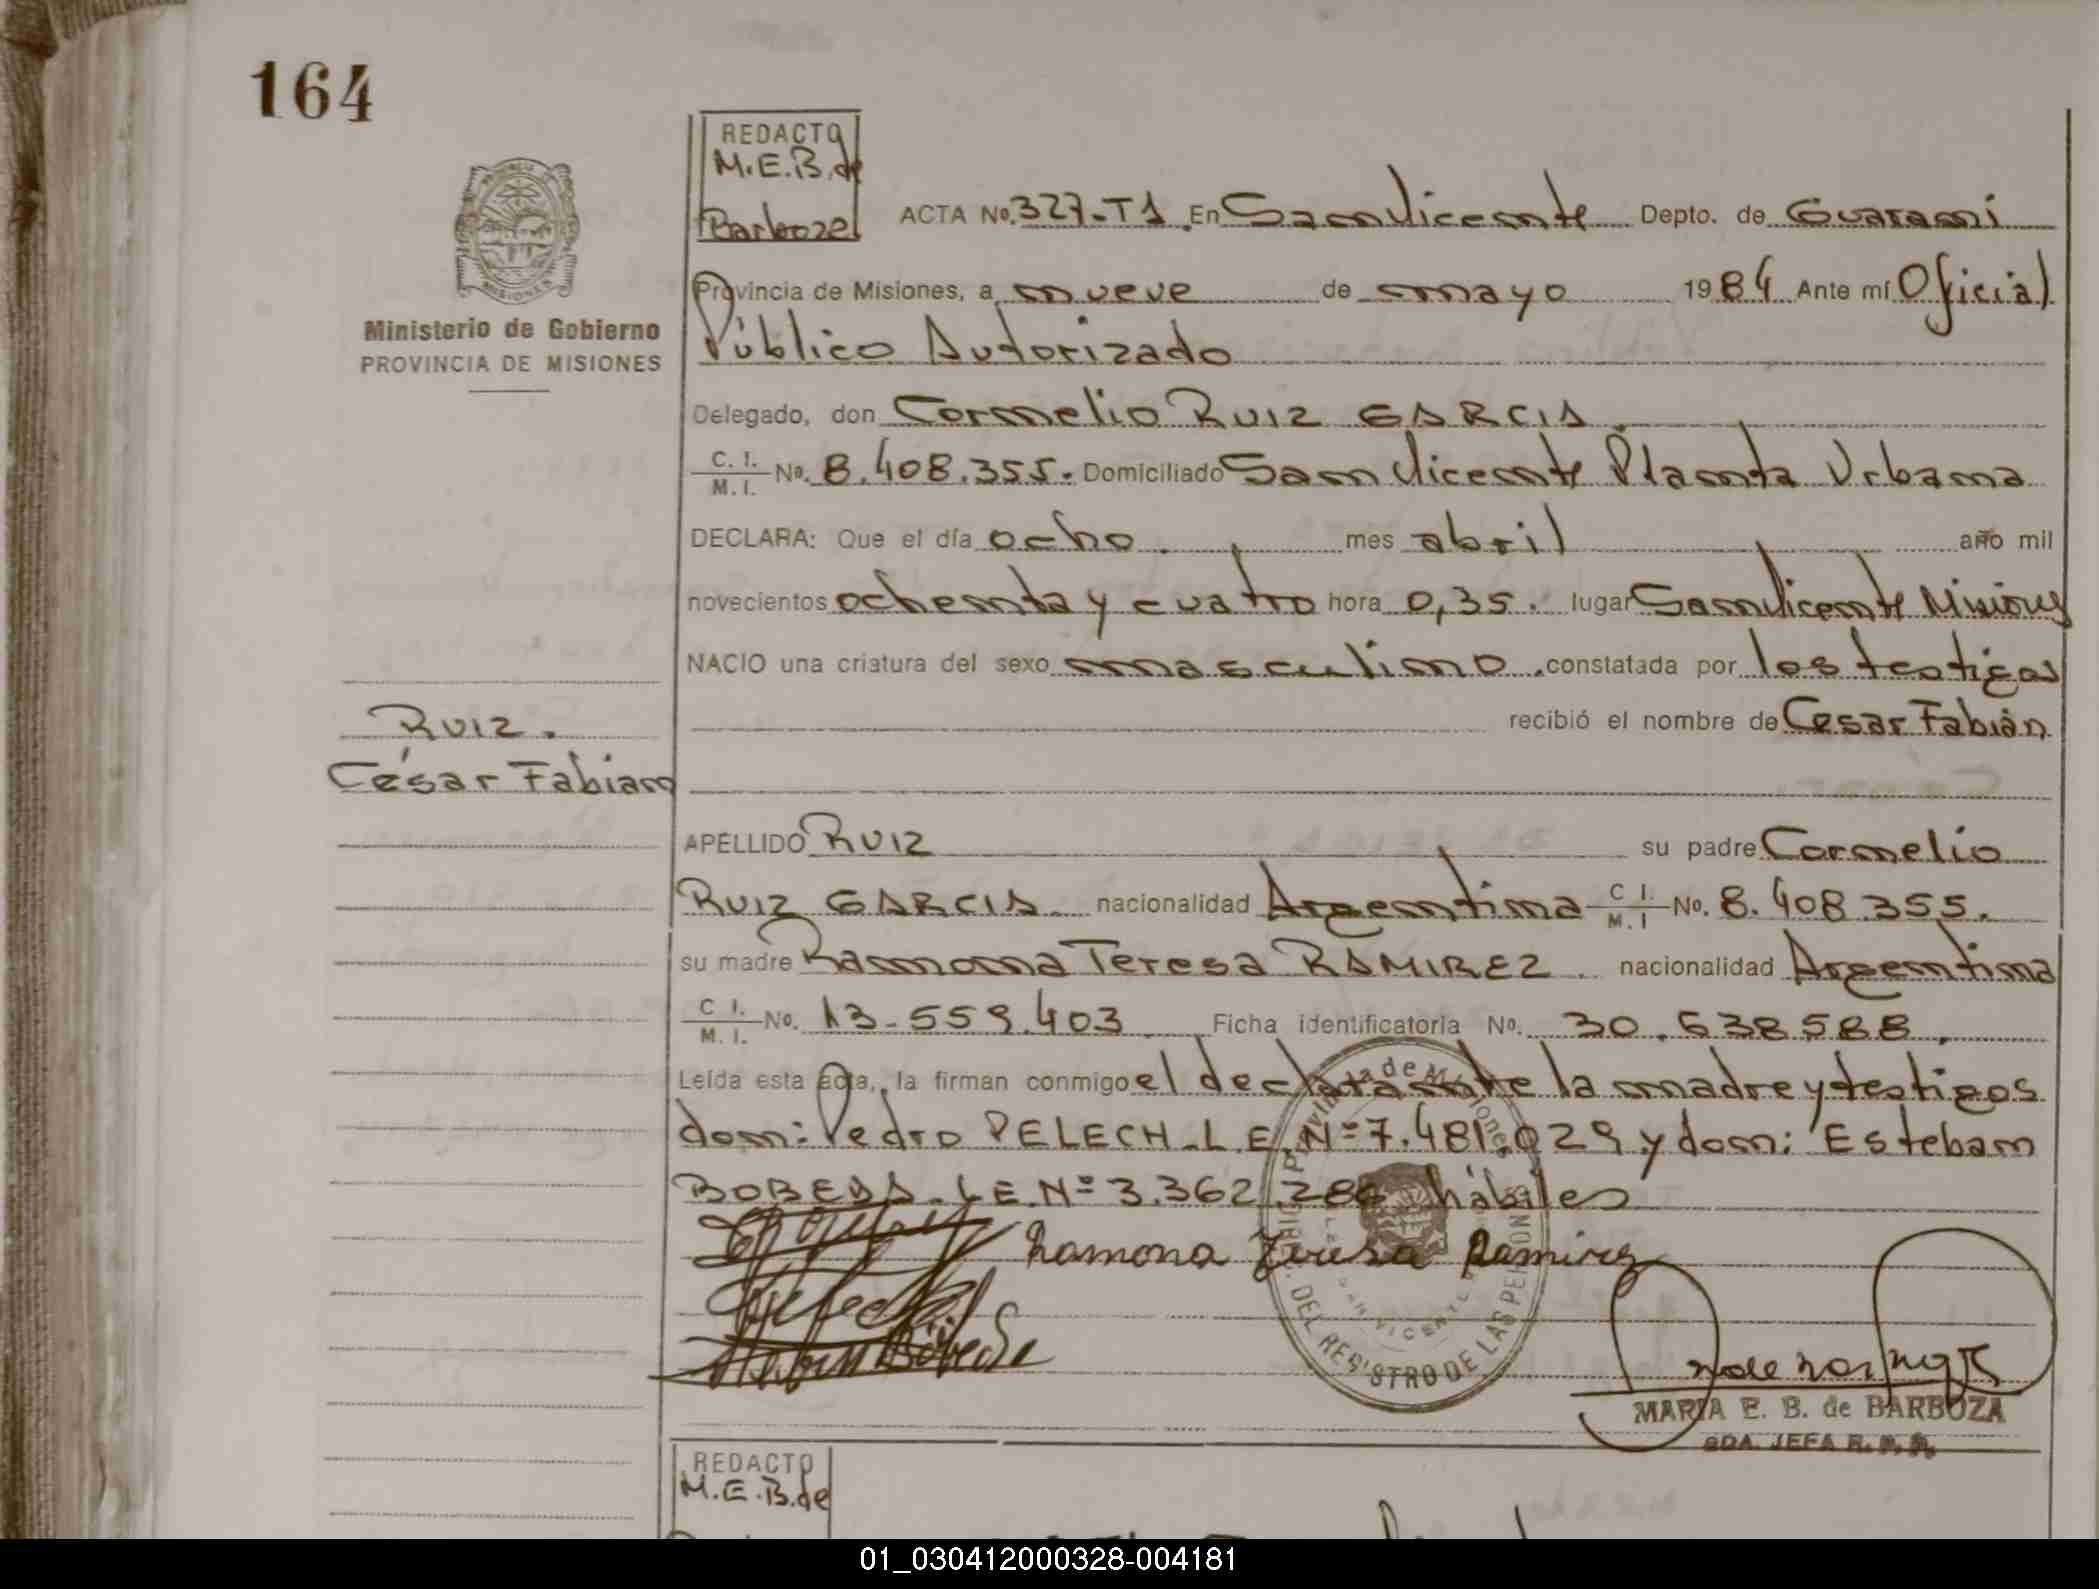 164
REDACTO
M.E.B. de
Barboza
ACTA No. 327-T1. En San Vicente Depto. de Guaraní
PROVINCIA DE MISIONES
Provincia de Misiones, a nueve de mayo 1984 Ante mí Oficial
Ministerio de Gobierno
PROVINCIA DE MISIONES
Público Autorizado
Delegado, don Cornelio RUIZ GARCIA.
C. I. M. I. No. 8.408.355. Domiciliado San Vicente Planta Urbana
DECLARA: Que el día ocho. mes abril año mil
novecientos ochenta y cuatro hora 0,35. lugar San Vicente Misiones
NACIO una criatura del sexo masculino. constatada por los testigos
recibió el nombre de César Fabián
RUIZ.
César Fabian
APELLIDO RUIZ su padre Cornelio
RUIZ GARCIA. nacionalidad Argentina C I. M. I No. 8.408.355.
su madre Ramona Teresa RAMIREZ. nacionalidad Argentina
C I. M. I. No. 13-559.403. Ficha identificatoria No. 30.638.588.
Leída esta acta, la firman conmigo el declarante la madre y testigos
don: Pedro PELECH_L.E.Nº7.481.029 y don: Esteban
BOBEDA_L.E.Nº3.362.286 hábiles
Ramona Teresa Ramirez
SAN VICENTE
DEL REGISTRO DE LAS PERSONAS
MARIA E. B. de BARBOZA
2DA. JEFA R. P.
REDACTO
M.E.B. de
01_030412000328-004181